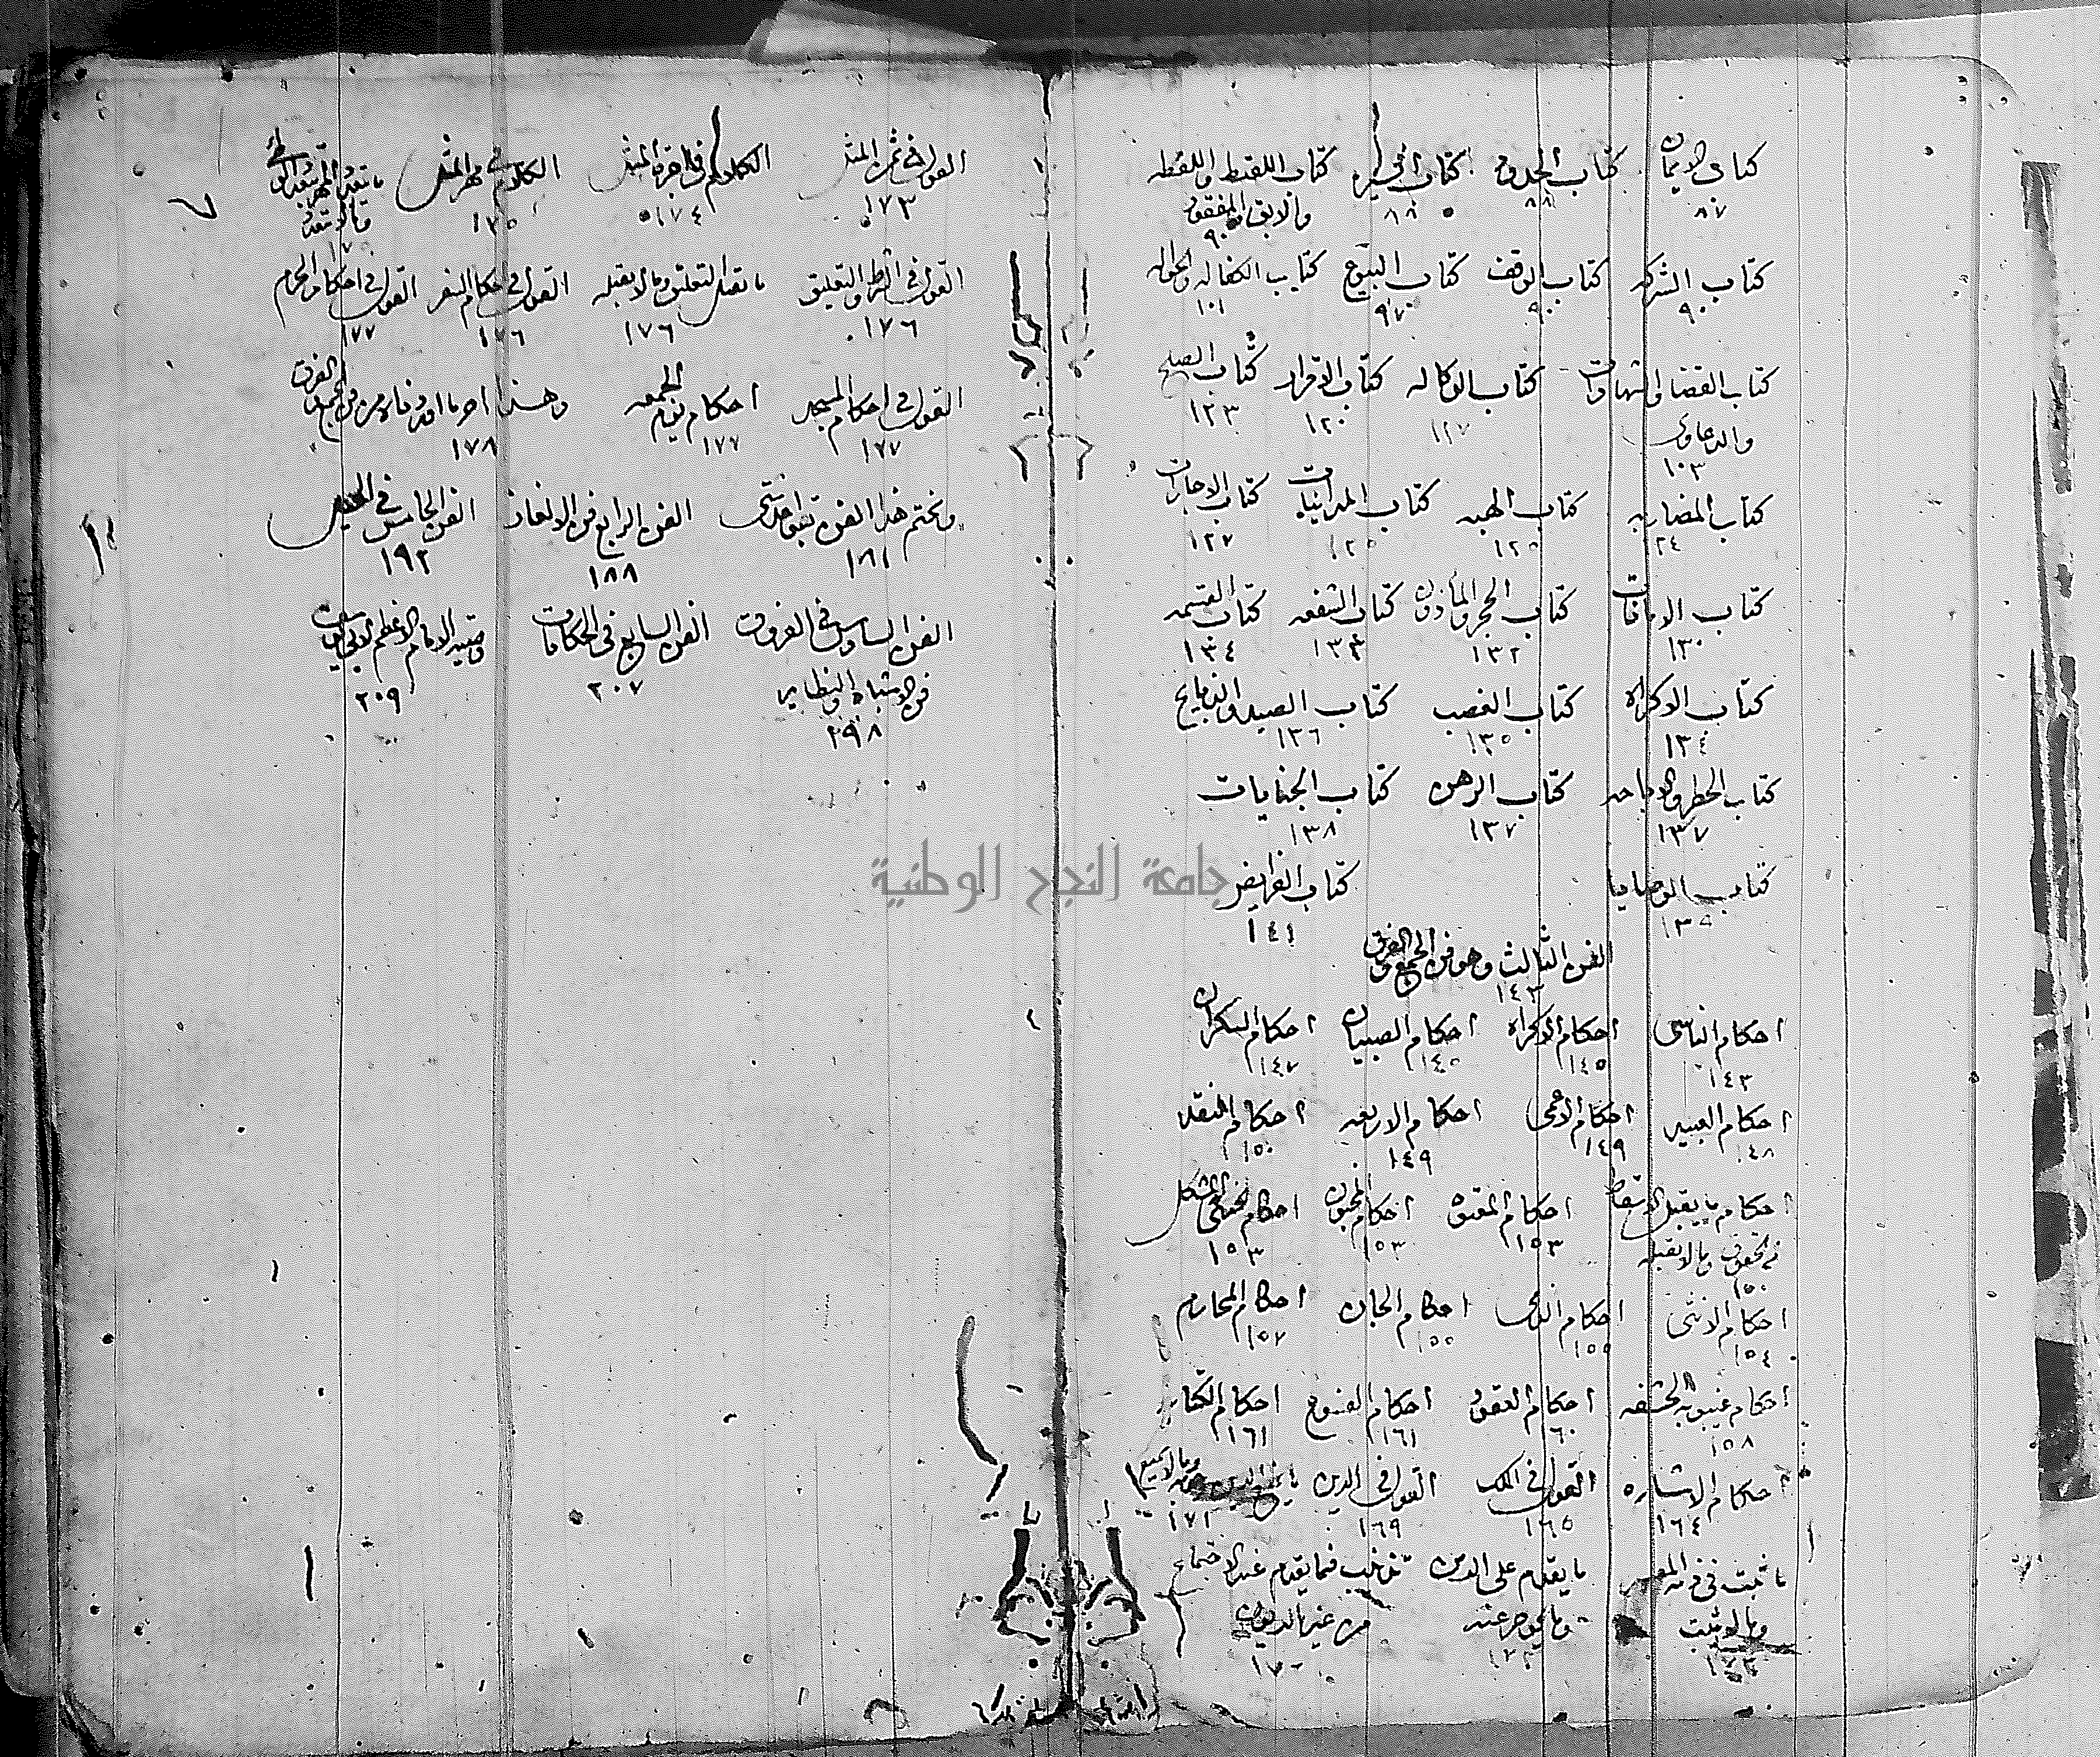 كتاب الايمان كتاب الحدود كتاب السير كتاب اللقيط واللقطه
والابق والمفقود
٨٧ ٨٨ ٨٨ ٩٠
كتاب الشركه كتاب الوقف كتاب البيوع كتاب الكفاله والحواله
٩٠ ٩٠ ٩٧ ١٠١
كتاب القضا والشهادات كتاب الوكاله كتاب الاقرار كتاب الصلح
والدعاوى
١٠٣ ١٢٠ ١٢٣
كتاب المضاربه كتاب الهبه كتاب المداينات كتاب الاجارات
١٢٤ ١٢٥ ١٢٥ ١٢٧
كتاب الامانات كتاب الحجر والماذون كتاب الشفعه كتاب القسمه
١٣٠ ١٣٢ ١٣٣ ١٣٤
كتاب الاكراه كتاب الغصب كتاب الصيد والذبايح
١٣٤ ١٣٥ ١٣٦
كتاب الحظر والاباحه كتاب الرهن كتاب الجنايات
١٣٧ ١٣٧ ١٣٨
كتاب الوصايا كتاب الفرايض
١٣٩ ١٤١
الفن الثالث وهو فن الجمع والفرق
١٤٣
احكام الناسى احكام الاكراه احكام الصبيان احكام السكران
١٤٣ ١٤٥ ١٤٥ ١٤٧
احكام العبيد احكام الاعمى احكام الاربعه احكام النقد
١٤٨ ١٤٩ ١٤٩ ١٥٠
احكام ما يقبل الاسقاط احكام المعتوه احكام المجنون احكام الخنثى المشكل
من الحقوق وما لا يقبله
١٥٠ ١٥٣ ١٥٣ ١٥٣
احكام الانثى احكام الذمى احكام الجان احكام المحارم
١٥٤ ١٥٥ ١٥٥ ١٥٧
احكام غيبوبه الحشفه احكام العقود احكام الفسوخ احكام الكتابه
١٥٨ ١٦٠ ١٦١ ١٦١
احكام الاشاره القول فى الملك القول فى الدين
١٦٤ ١٦٥ ١٦٩ ١٧٢
ما ثبت فى ذمه المعسر ما يقدم على الدين تذنيب فيما يقدم عند الاجتماع
وما لا يثبت وما يوخر عنه من غير الديون
القول فى ثمن المثل الكلام فى اجره المثل الكلام فى مهر المثل ما يتعدد المهر بتعدد الوطئ
وما لا يتعدد
١٧٣ ١٧٤ ١٧٥
القول فى الشرط والتعليق ما يقبل التعليق وما لا يقبله القول فى احكام السفر القول فى احكام الحرم
١٧٦ ١٧٦ ١٧٦ ١٧٧
القول فى احكام المسجد احكام يوم الجمعه وهذا اخر ما اوردناه من فن الجمع والفرق
١٧٧ ١٧٧ ١٧٨
ونختم هذا الفن بقواعد شتى الفن الرابع فن الالغاز الفن الخامس فى الحيل
١٨١ ١٨٨ ١٩٢
الفن السادس فى الفروق الفن السابع فى الحكايات وصيه الامام الاعظم لابى يوسف
فن الاشباه والنظاير
٢٠٧ ٢٠٩
جامعة النجاح الوطنية